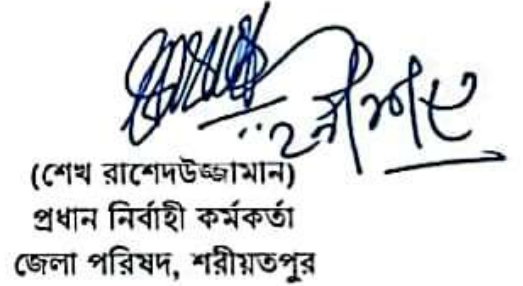 (শেখ রাশেদউজ্জামান)
প্রধান নির্বাহী কর্মকর্তা
জেলা পরিষদ, শরীয়তপুর